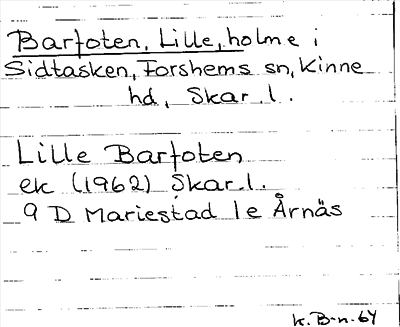 Barfoten, Lille, holme i
Sidtasken, Forshems sn, Kinne
hd, Skar.l.
Lille Barfoten
ek (1962) Skar.l.
9 D Mariestad 1e Årnäs
K.B-n.64